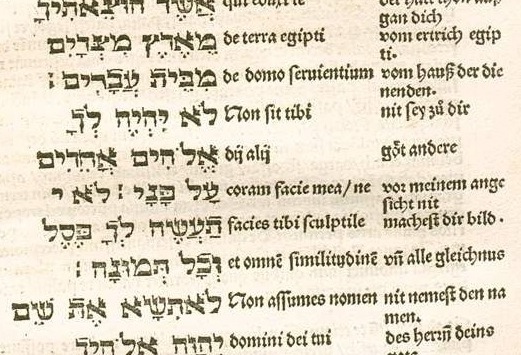 gan dich
מֵאָרֶץ מִצְרַיִם de terra egipti vom ertrich egip
ti.
מִבֵּית עֲבָדִים׃ de domo seruientium vom hauß der die
nenden.
לֹא יִהְיֶה לְךָ Non sit tibi nit sey zů dir
אֱלֹהִים אֲחֵרִים dij alij gőt andere
עַל פָּנָי׃ לֹא י coram facie mea/ne vor meinem ange
sicht nit
תַּעֲשֶׂה לְךָ פֶּסֶל facies tibi sculptile machest dir bild.
וְכָל תְּמוּנָה׃ et omnē similitudinē vñ alle gleichnus
לֹא תִשָּׂא אֶת שֵׁם Non assumes nomen nit nemest den na
men.
יְהוָה אֱלֹהֶיךָ domini dei tui des herrn deins